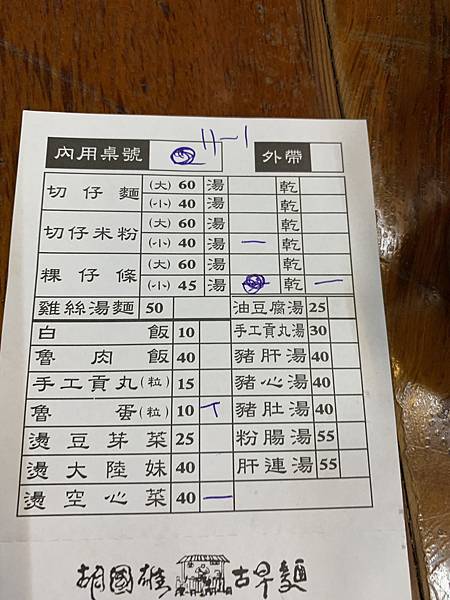 內用桌號 11-1 外帶
切仔麵 (大) 60 湯 乾
(小) 40 湯 乾
切仔米粉 (大) 60 湯 乾
(小) 40 湯 一 乾
粿仔條 (大) 60 湯 乾
(小) 45 湯 乾 一
雞絲湯麵 50 油豆腐湯 25
白飯 10 手工貢丸湯 30
魯肉飯 40 豬肝湯 40
手工貢丸(粒) 15 豬心湯 40
魯蛋(粒) 10 ㄒ 豬肚湯 40
燙豆芽菜 25 粉腸湯 55
燙大陸妹 40 肝連湯 55
燙空心菜 40 一
胡國雄古早麵